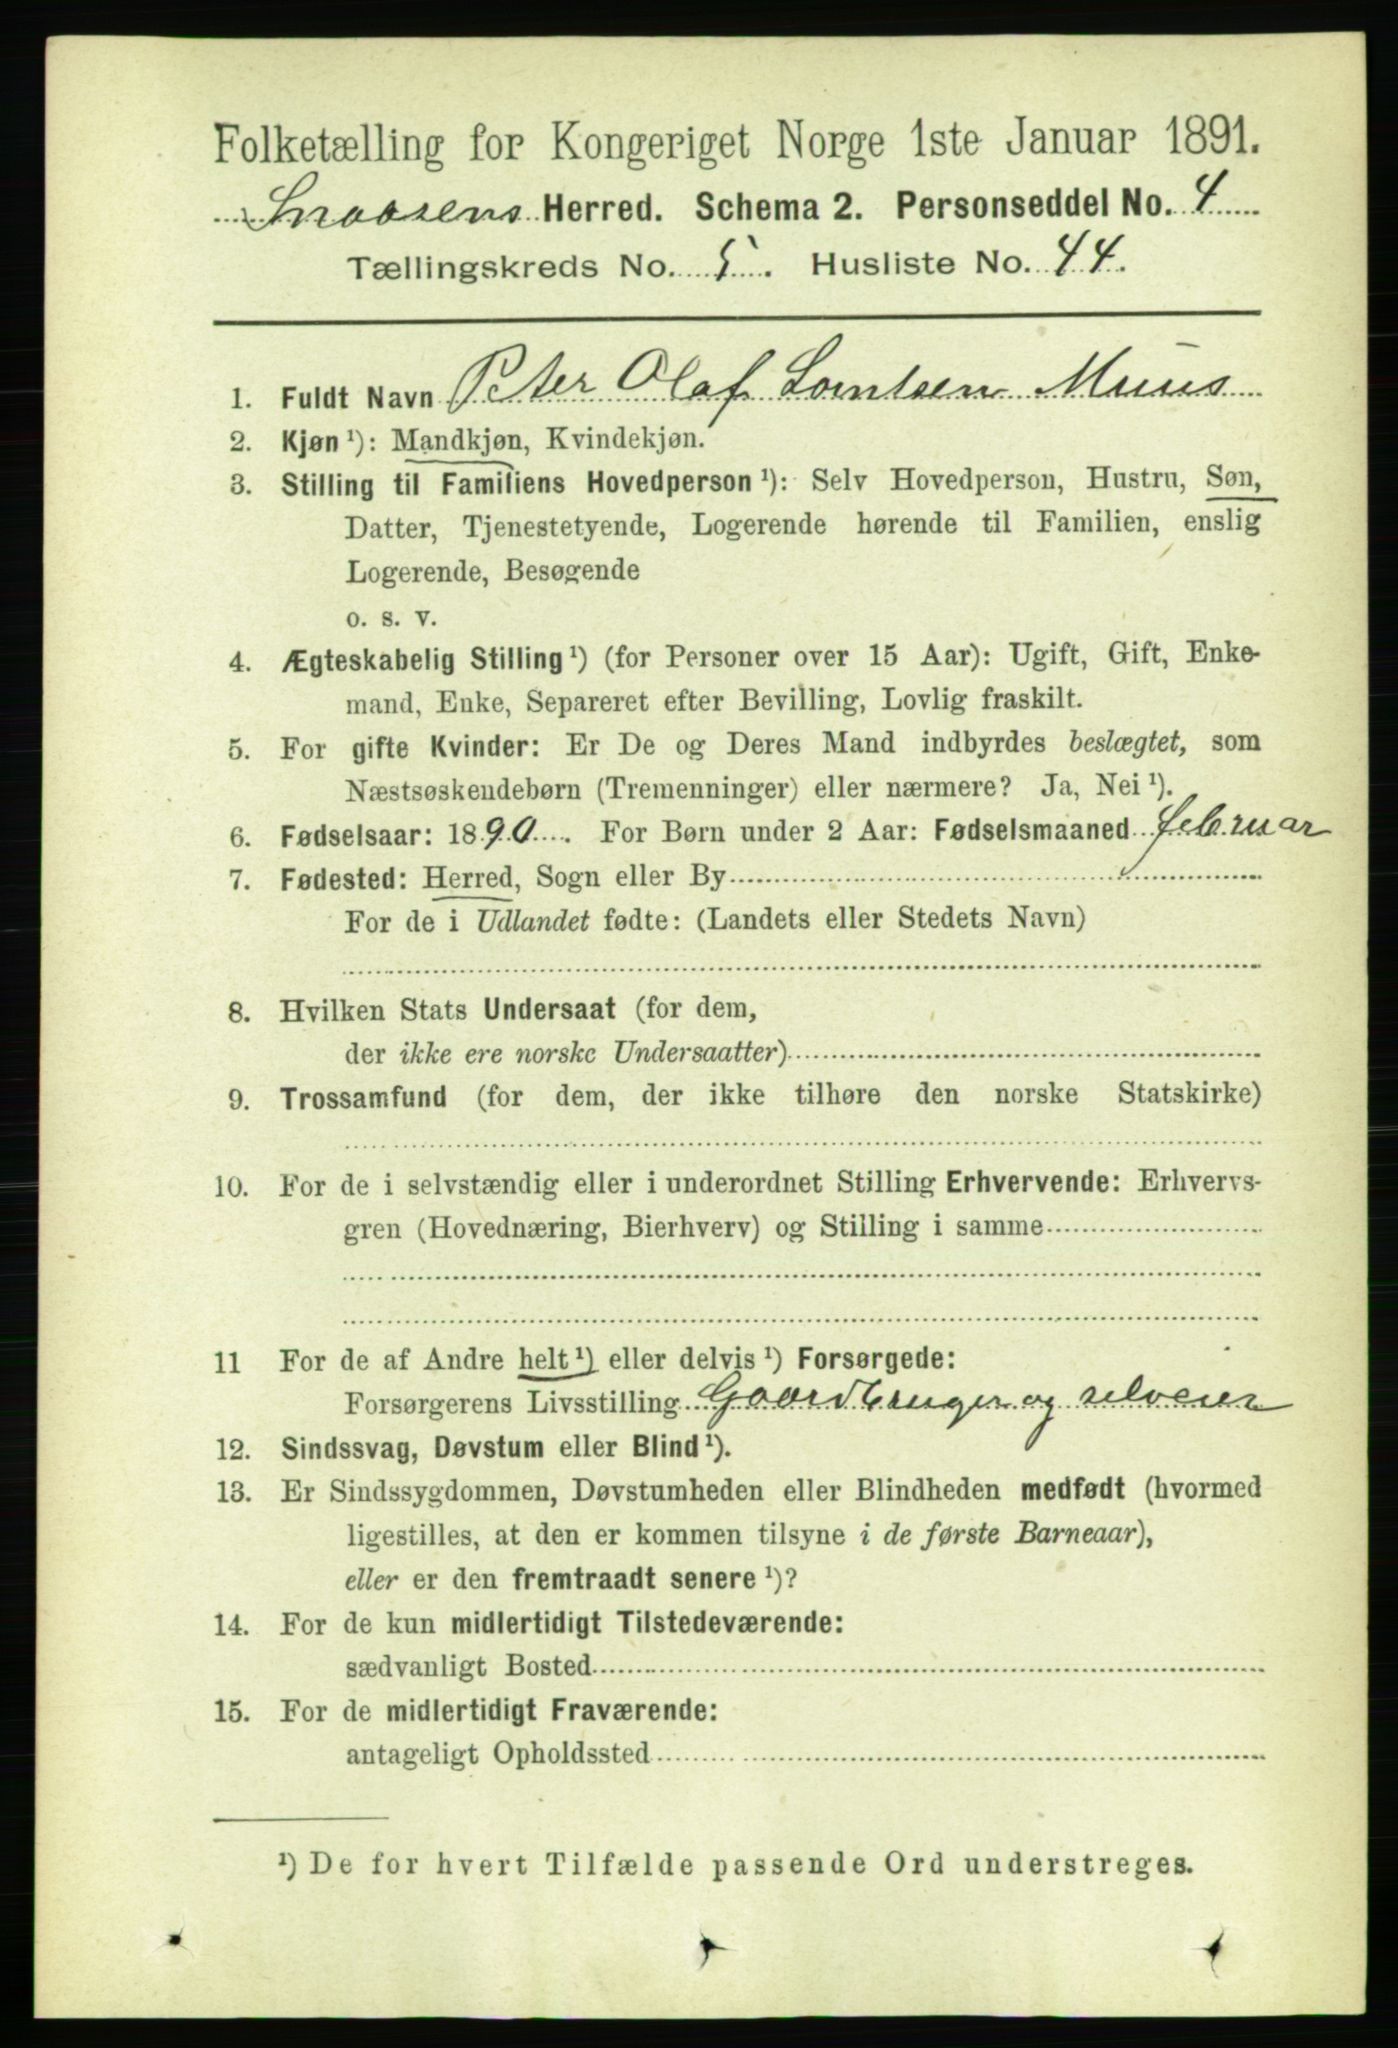 Folketælling for Kongeriget Norge 1ste Januar 1891.
Snaasens Herred. Schema 2. Personseddel No. 4
Tællingskreds No. 5. Husliste No. 44.
1. Fuldt Navn Peter Olaf Lorntsen Muus
2. Kjøn ¹): Mandkjøn, Kvindekjøn.
3. Stilling til Familiens Hovedperson ¹): Selv Hovedperson, Hustru, Søn,
Datter, Tjenestetyende, Logerende hørende til Familien, enslig
Logerende, Besøgende
o. s. v.
4. Ægteskabelig Stilling ¹) (for Personer over 15 Aar): Ugift, Gift, Enke-
mand, Enke, Separeret efter Bevilling, Lovlig fraskilt.
5. For gifte Kvinder: Er De og Deres Mand indbyrdes beslægtet, som
Næstsøskendebørn (Tremenninger) eller nærmere? Ja, Nei ¹).
6. Fødselsaar: 1890. For Børn under 2 Aar: Fødselsmaaned februar
7. Fødested: Herred, Sogn eller By
For de i Udlandet fødte: (Landets eller Stedets Navn)
8. Hvilken Stats Undersaat (for dem,
der ikke ere norske Undersaatter)
9. Trossamfund (for dem, der ikke tilhøre den norske Statskirke)
10. For de i selvstændig eller i underordnet Stilling Erhvervende: Erhvervs-
gren (Hovednæring, Bierhverv) og Stilling i samme
11 For de af Andre helt ¹) eller delvis ¹) Forsørgede:
Forsørgerens Livsstilling Gaardbruger og selveier
12. Sindssvag, Døvstum eller Blind ¹).
13. Er Sindssygdommen, Døvstumheden eller Blindheden medfødt (hvormed
ligestilles, at den er kommen tilsyne i de første Barneaar),
eller er den fremtraadt senere ¹)?
14. For de kun midlertidigt Tilstedeværende:
sædvanligt Bosted
15. For de midlertidigt Fraværende:
antageligt Opholdssted
¹) De for hvert Tilfælde passende Ord understreges.